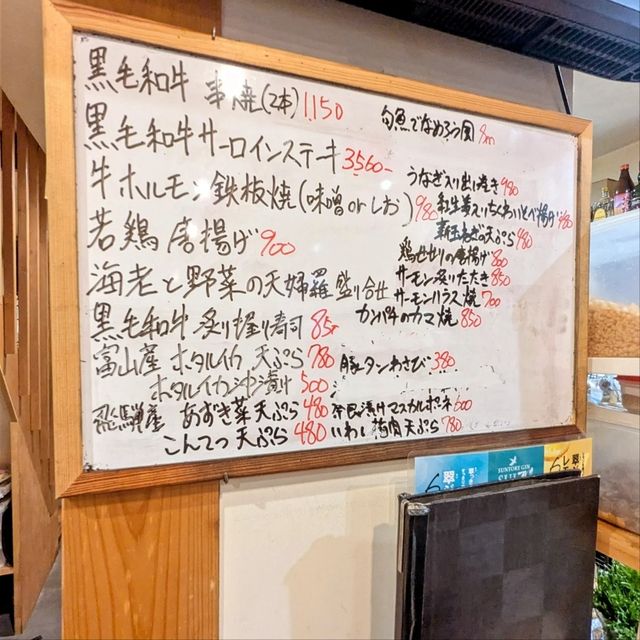 黒毛和牛 串焼(2本) 1,150
黒毛和牛サーロインステーキ 3560-
牛ホルモン鉄板焼(味噌orしお) 980
若鶏唐揚げ 900
海老と野菜の天婦羅盛り合せ
黒毛和牛炙り握り寿司 85
富山産 ホタルイカ 天ぷら 780
ホタルイカ沖漬け 500
飛騨産 あずき菜天ぷら 480
こんてつ 天ぷら 480
旬魚でなめろう
うなぎ入り出し巻き 980
ちくわいそべ揚げ 480
新玉ねぎの天ぷら 480
鶏せせりの唐揚げ 800
サーモン炙りたたき 850
サーモンハラス焼 700
カンパチのカマ焼 850
豚タンわさび 380
奈良漬けマスカルポーネ 600
いわし梅肉天ぷら 780
翠
SUNTORY GIN
翠